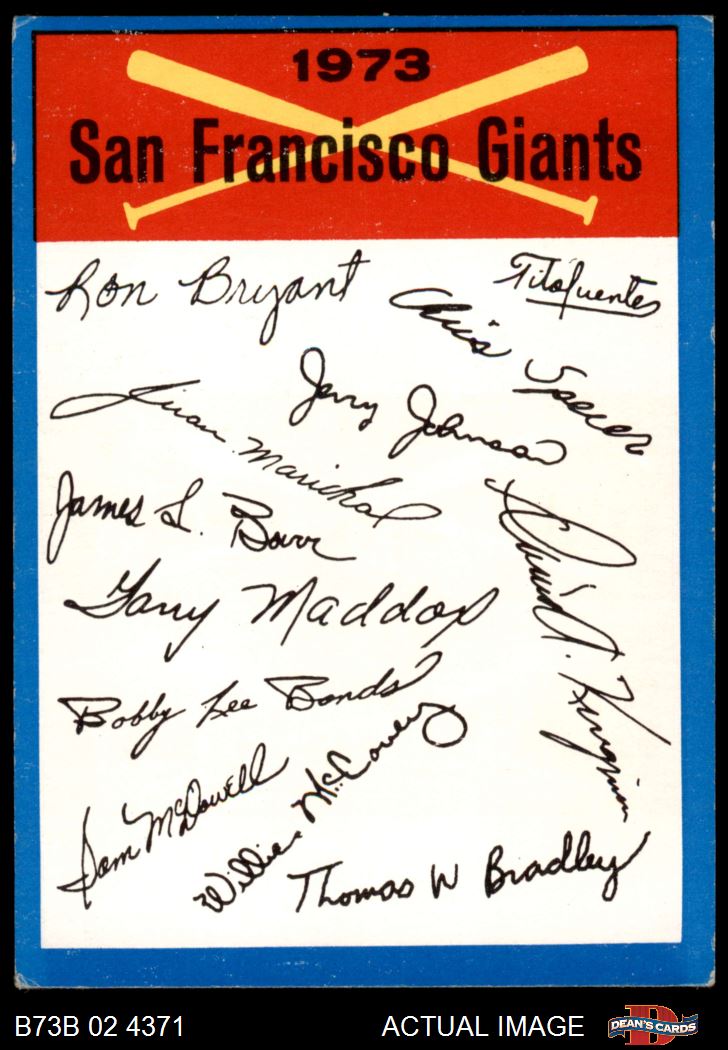 1973
San Francisco Giants
Ron Bryant
Tito Fuentes
Chris Speier
Jerry Johnson
Juan Marichal
James L. Barr
David A. Kingman
Garry Maddox
Bobby Lee Bonds
Sam McDowell
Willie McCovey
Thomas W Bradley
B73B 02 4371
ACTUAL IMAGE
DEAN'S CARDS